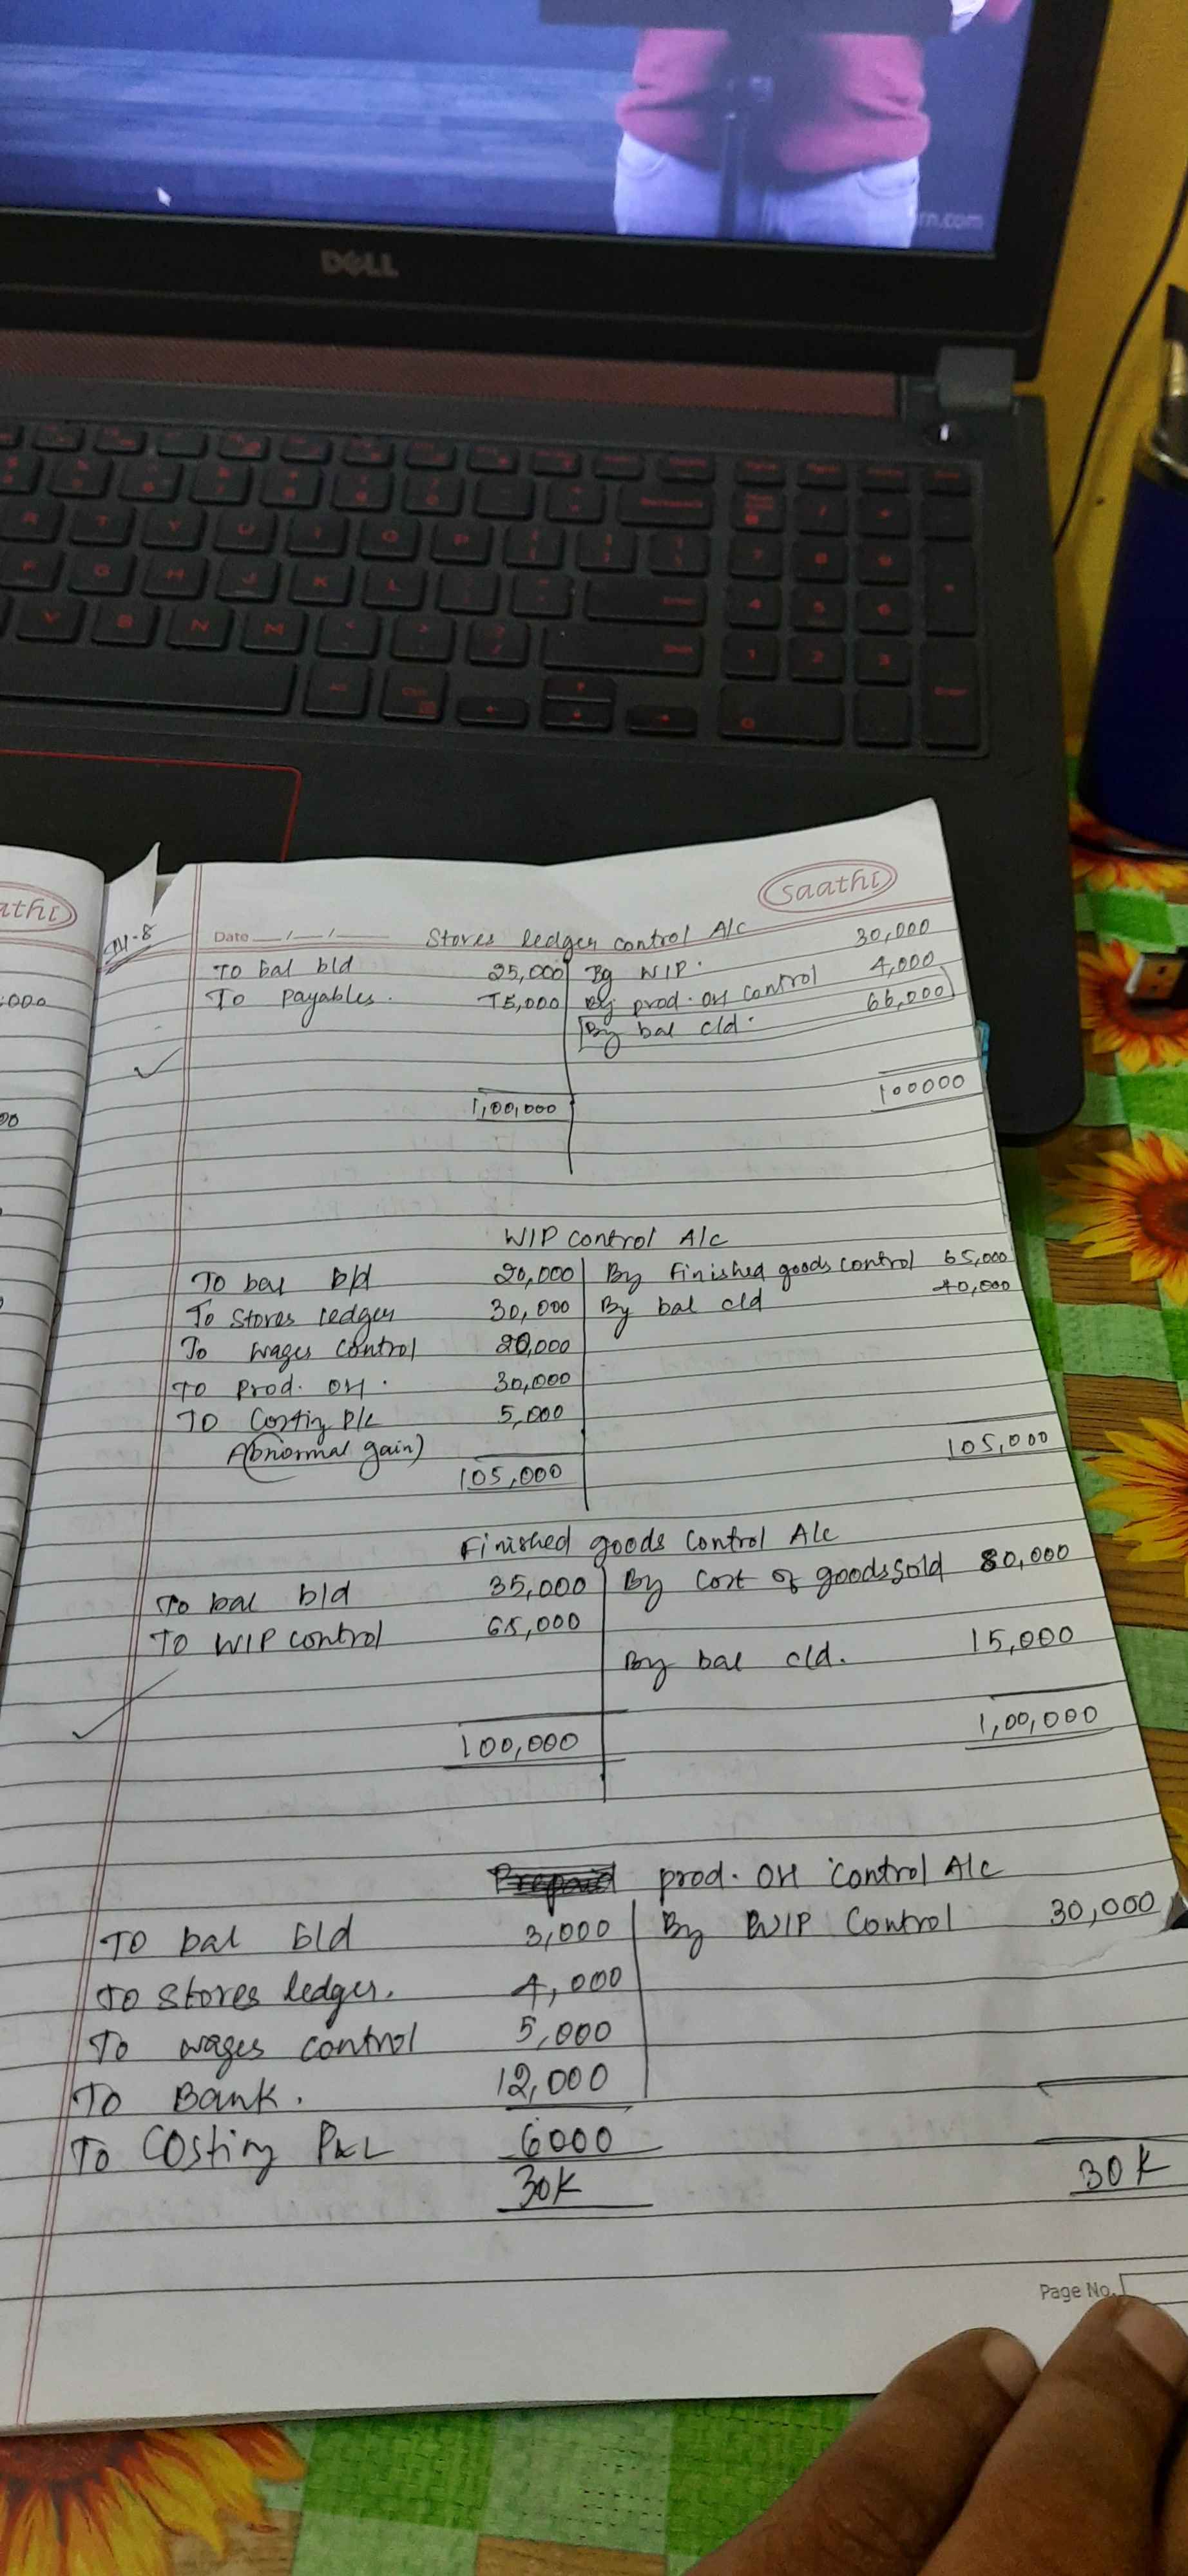 rn.com
DELL
saathi
athi
Ill-8
Date __/__/__ Stores ledger control A/c
To bal b/d 25,000 By WIP. 30,000
To payables. 75,000 By prod. OH control 4,000
By bal c/d. 66,000
1,00,000 100000
WIP control A/c
To bal b/d 20,000 By Finished goods control 65,000
To Stores ledger 30,000 By bal c/d 40,000
To wages control 20,000
To Prod. OH. 30,000
To Costing P/L 5,000
(Abnormal gain)
105,000 105,000
Finished goods control A/c
To bal b/d 35,000 By Cost of goods sold 80,000
To WIP control 65,000
By bal c/d. 15,000
100,000 1,00,000
prod. OH control A/c
To bal b/d 3,000 By WIP Control 30,000
To stores ledger. 4,000
To wages control 5,000
To Bank. 12,000
To Costing P&L 6000
30K 30K
Page No.